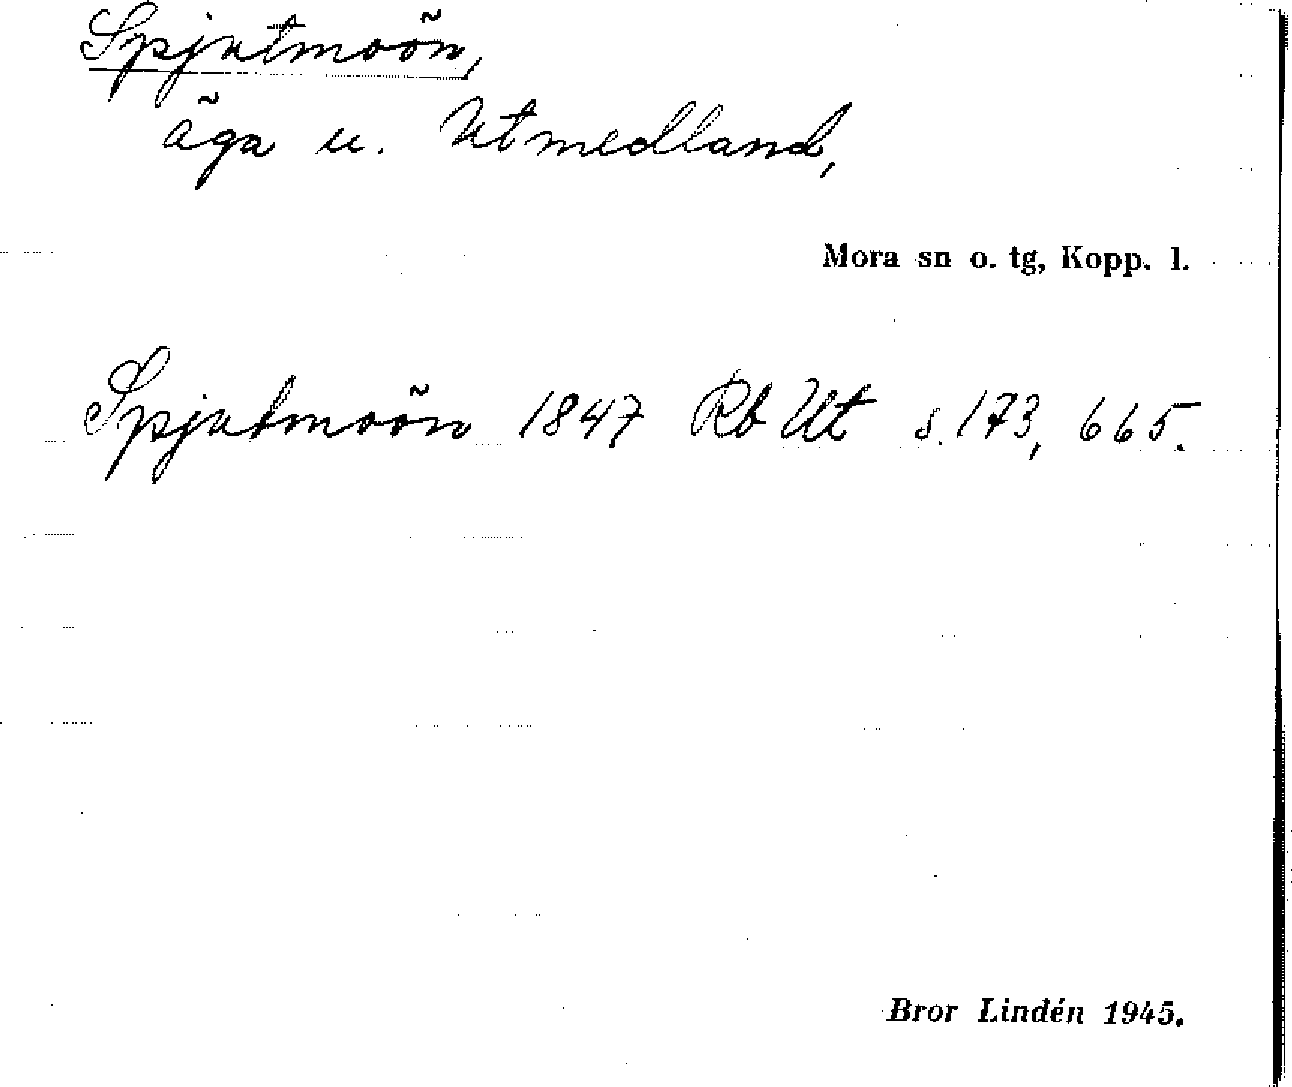 Spjutmoön,
äga u. Utmedland,
Mora sn o. tg, Kopp. l.
Spjutmoön 1847 Rb Ut s. 173, 665.
Bror Lindén 1945.